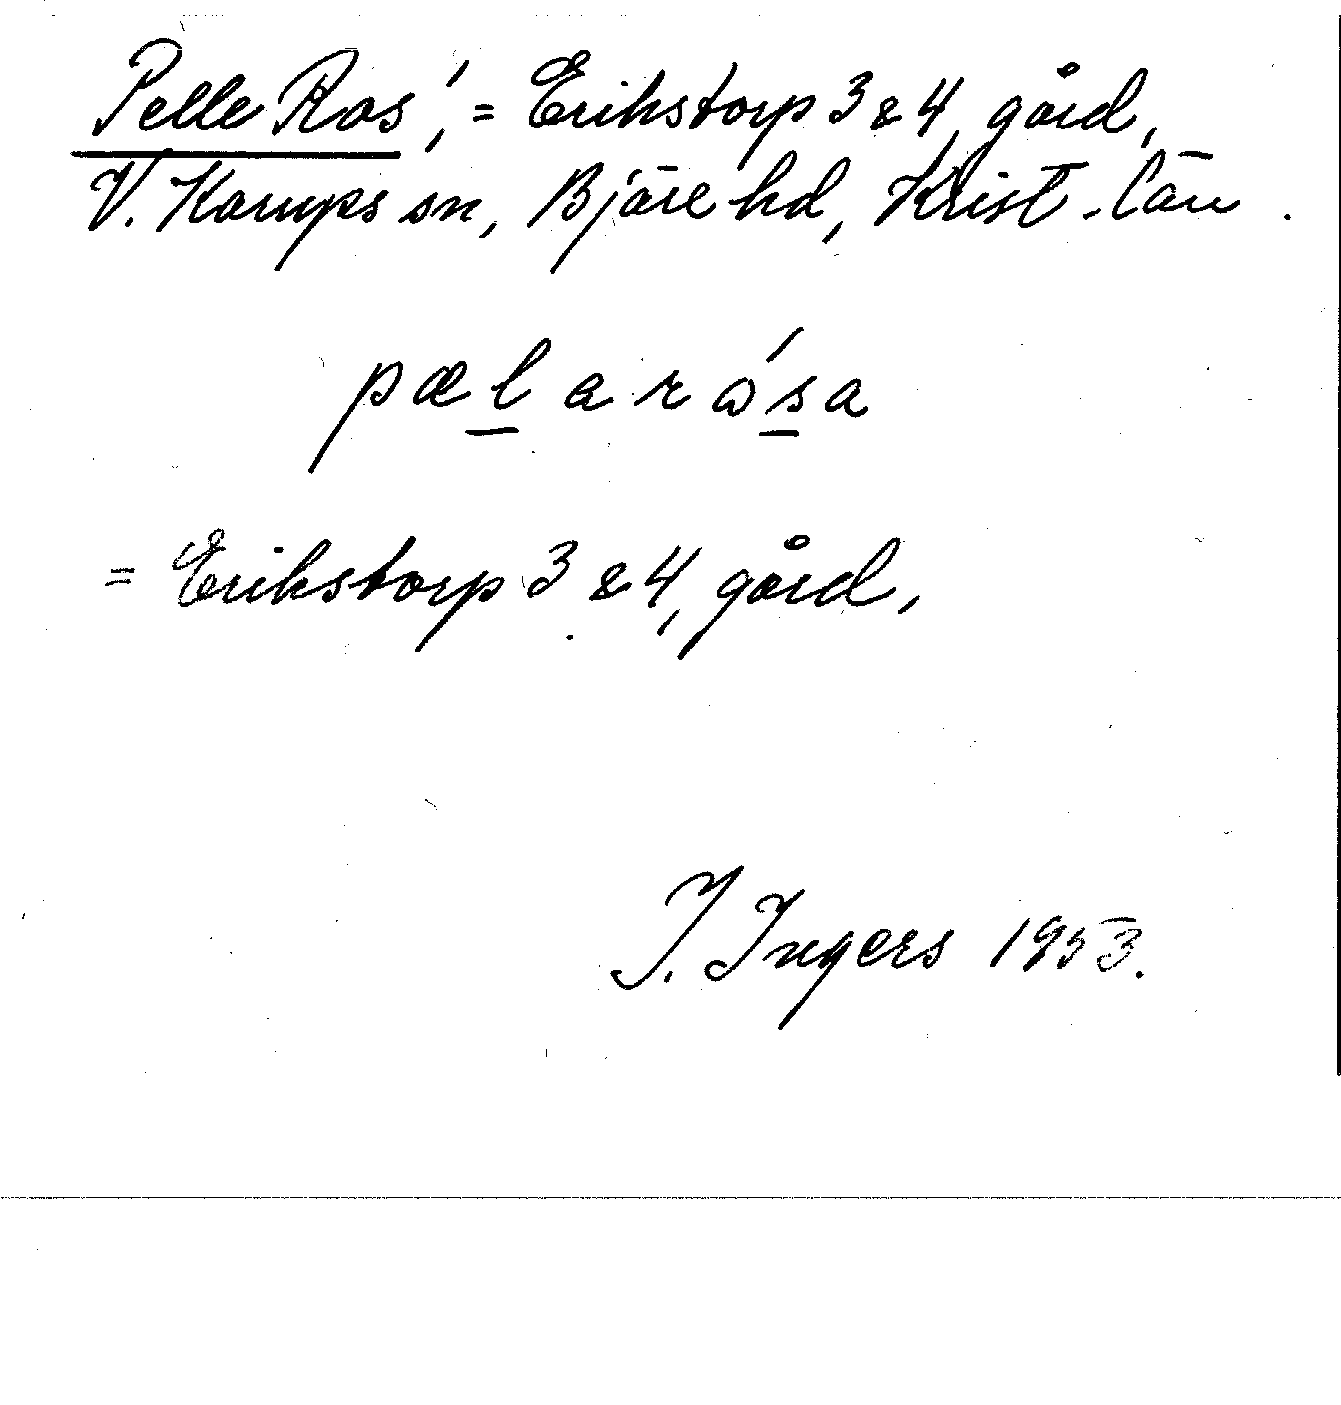 Pelle Ras', = Erikstorp 3 & 4, gård,
V. Karups sn, Bjäre hd, Krist. län.
pælaråsa
= Erikstorp 3 & 4, gård,
I. Ingers 1953.